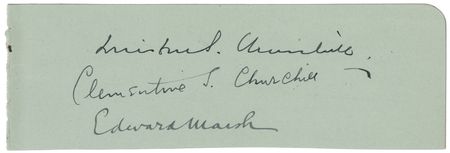 Winston S. Churchill
Clementine S. Churchill
Edward Marsh